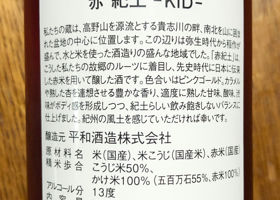 赤 紀土 -KID-
私たちの蔵は、高野山を源流とする貴志川の畔、南北を山に囲ま
れた盆地の中心に位置します。この辺りは弥生時代から稲作が
盛んで、水と米を使った酒造りの盛んな地域でした。「赤紀土」は、
こうした私たちの故郷のルーツに着目し、先史時代に日本に伝来し
た赤米を用いて醸した酒です。色合いはピンクゴールド。カラメル
や熟した杏を連想させる豊かな香り、適度に熟した甘味、酸味、渋
味がボディ感を形成しつつ、紀土らしい飲み飽きしないバランスに
仕上げました。紀州の風土を感じていただければ幸いです。
醸造元 平和酒造株式会社
原材料名 米（国産）、米こうじ（国産米）、赤米（国産）
精米歩合 こうじ米50%、
かけ米100%（五百万石55%、赤米100%）
アルコール分 13度